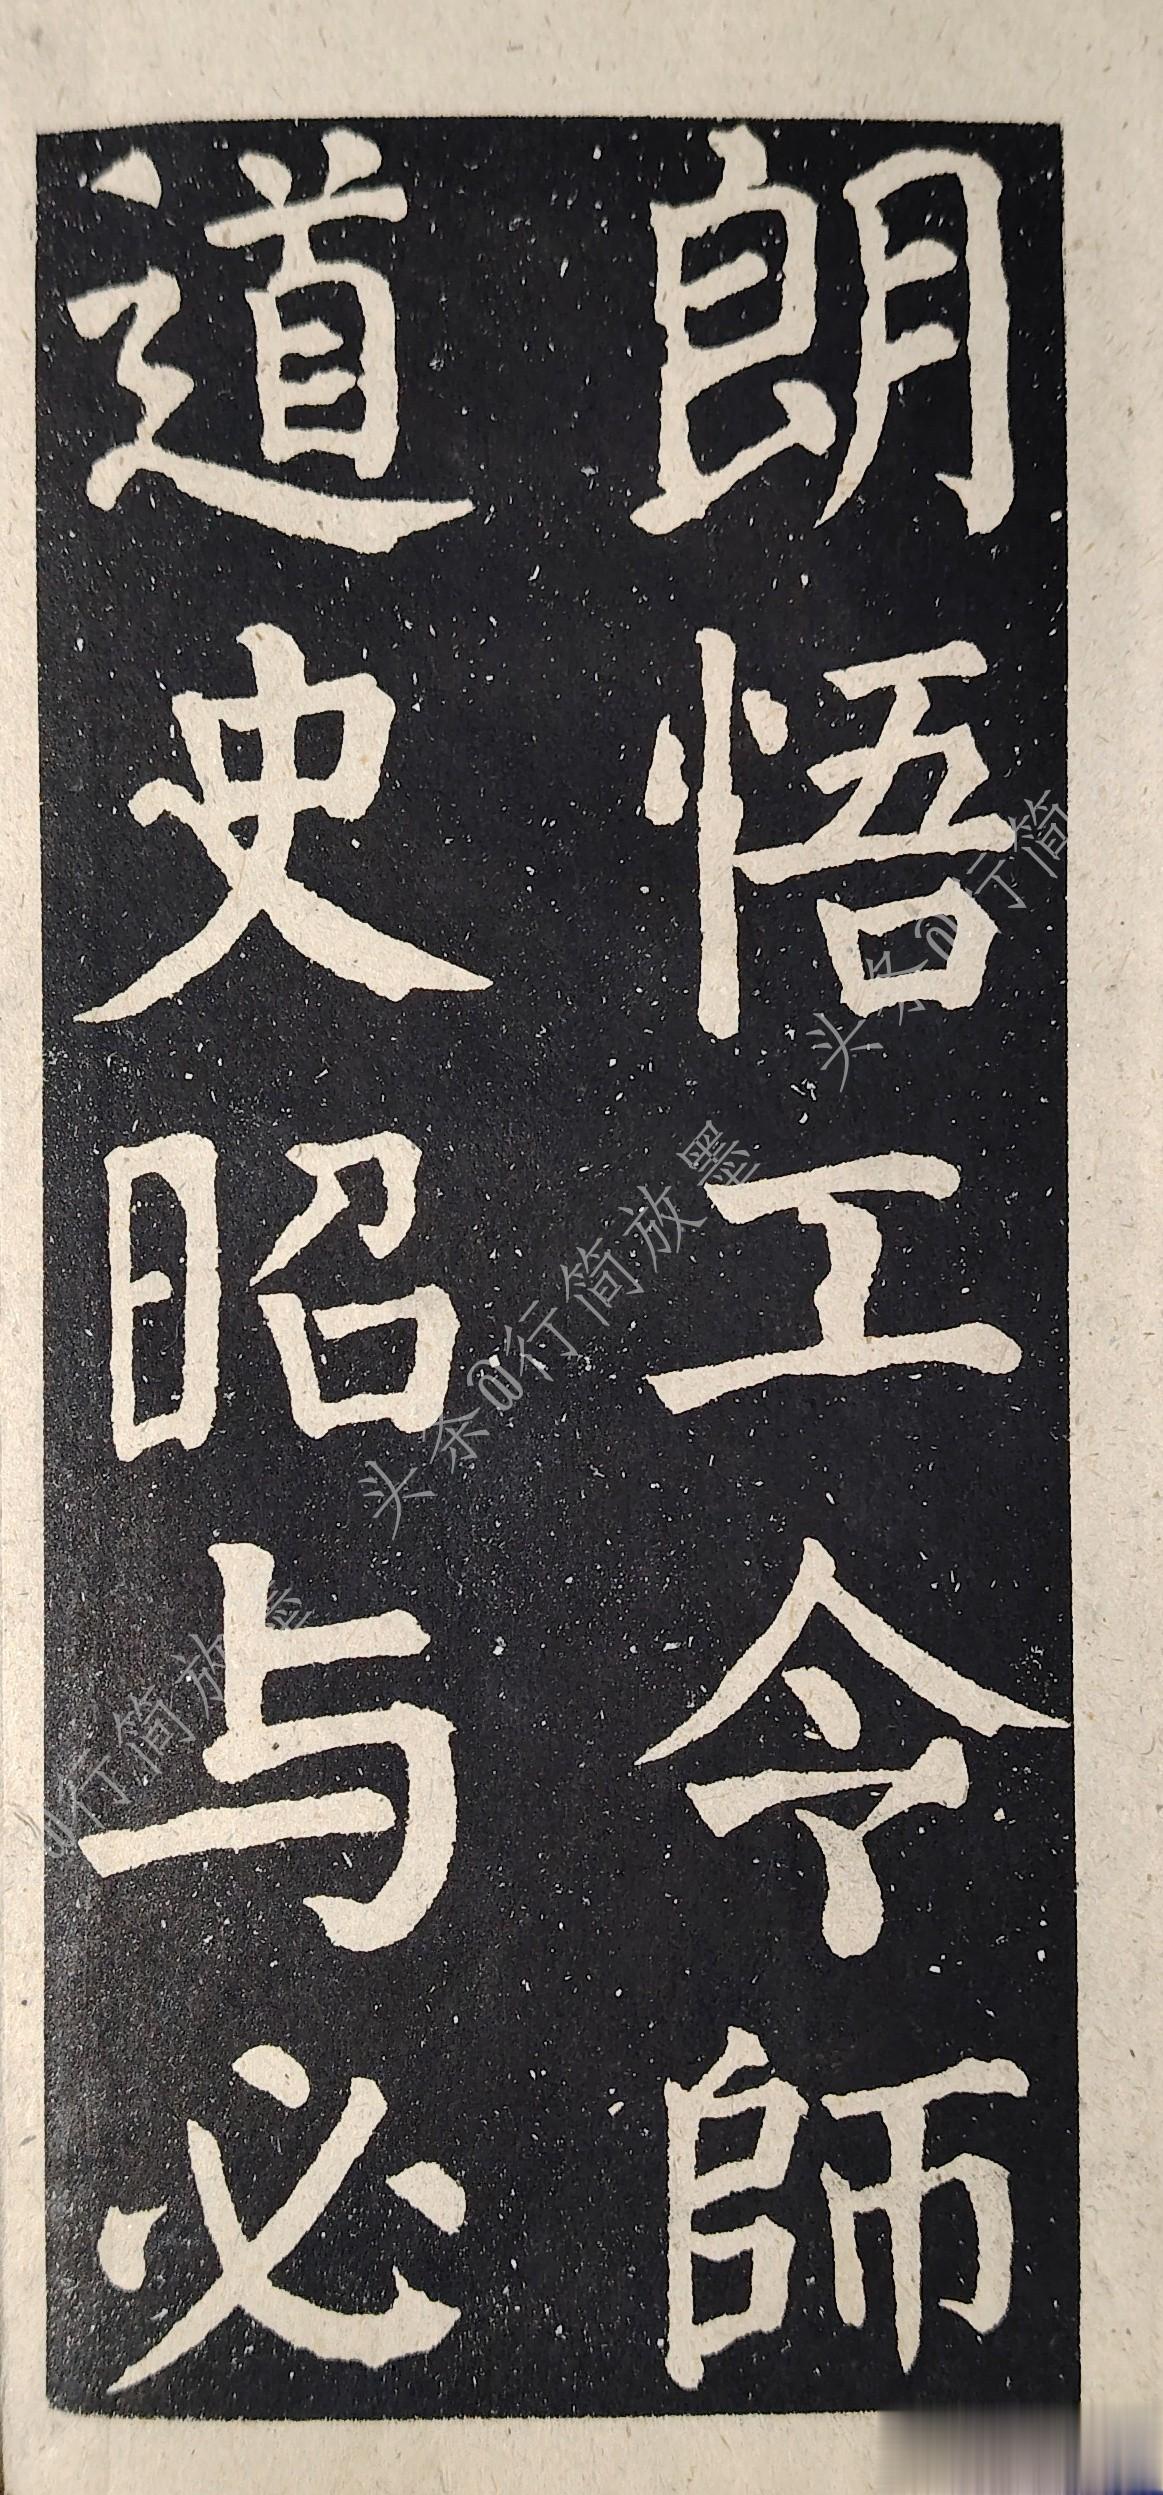 朗悟工令師
道史昭与必
头条@行简
头条@行简放墨
@行简放墨